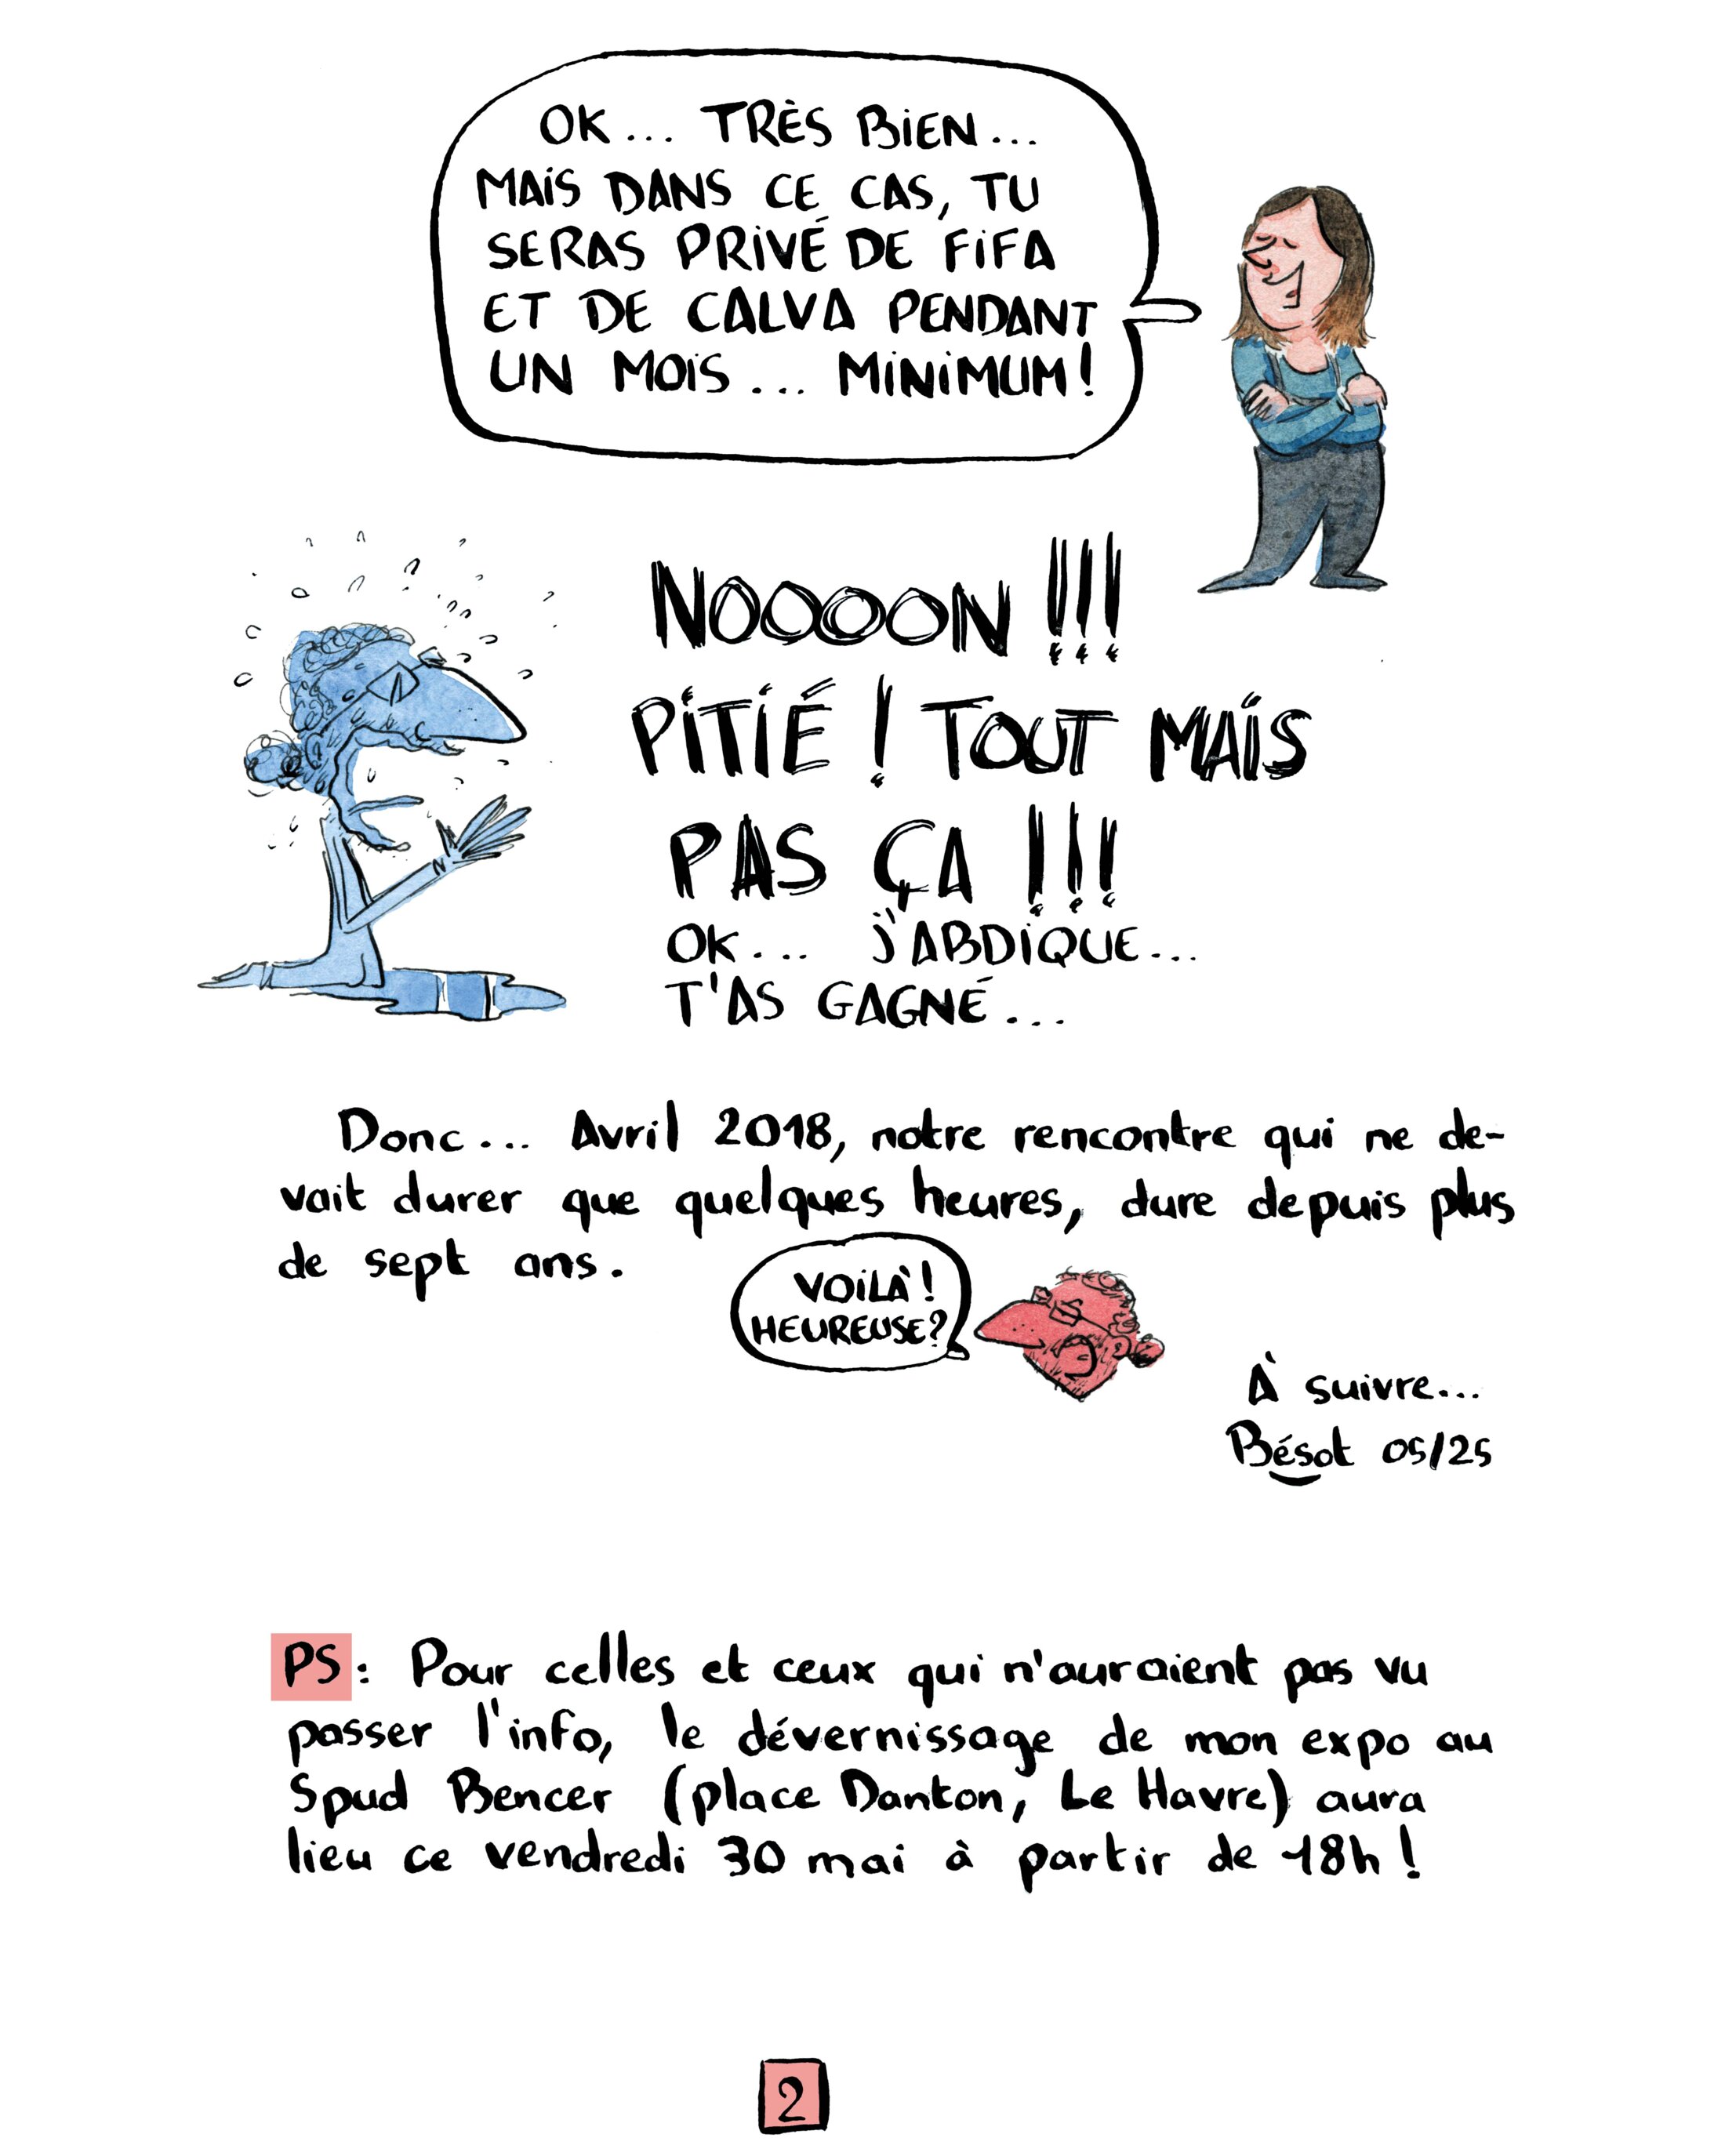 OK... TRÈS BIEN...
MAIS DANS CE CAS, TU
SERAS PRIVÉ DE FIFA
ET DE CALVA PENDANT
UN MOIS... MINIMUM!
NOOOON !!!
PITIÉ ! TOUT MAIS
PAS ÇA !!!
OK... J'ABDIQUE...
T'AS GAGNÉ...
Donc... Avril 2018, notre rencontre qui ne de-
vait durer que quelques heures, dure depuis plus
de sept ans.
VOILÀ!
HEUREUSE?
À suivre...
Bésot 05/25
PS: Pour celles et ceux qui n'auraient pas vu
passer l'info, le dévernissage de mon expo au
Spud Bencer (place Danton, Le Havre) aura
lieu ce vendredi 30 mai à partir de 18h !
2